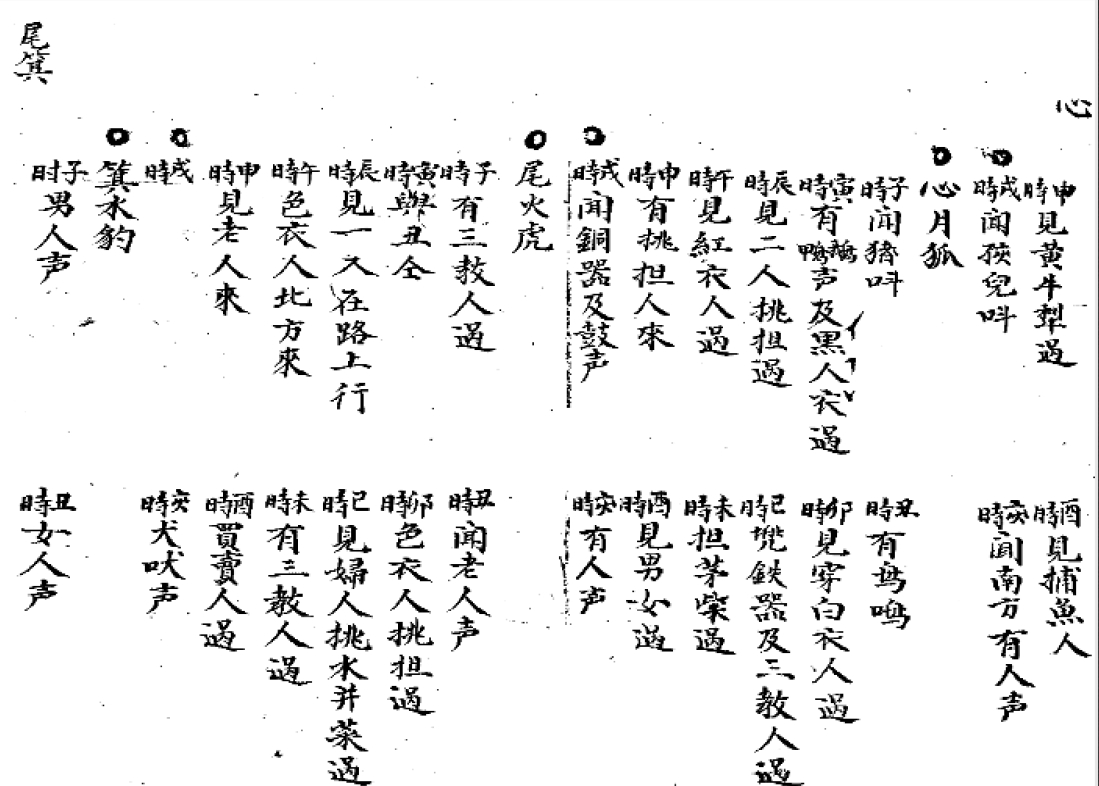 心
申時見黃牛犁過
酉時見捕魚人
戌時闻孩兒呌
亥時闻南方有人声
心月狐
子時闻猪呌
丑時有鸟鳴
寅時有鵝鴨声及黑人衣過
卯時見穿白衣人過
辰時見二人挑担過
巳時鉄器及三教人過
午時見紅衣人過
未時担茅柴過
申時有挑担人來
酉時見男女過
戌時闻銅器及鼓声
亥時有人声
尾火虎
子時有三教人過
丑時闻老人声
寅時與丑仝
卯時色衣人挑担過
辰時見一人在路上行
巳時見婦人挑水并菜過
午時色衣人北方來
未時有三教人過
申時見老人來
酉時買賣人過
戌時
亥時犬吠声
箕水豹
子时男人声
丑時女人声
尾箕